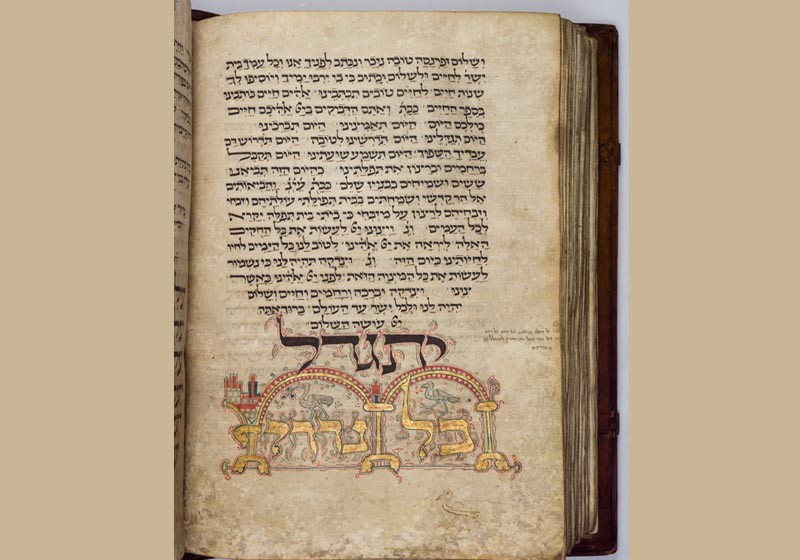 ושלום ופרנסה טובה נזכר ונכתב לפניך אנו וכל עמך בית
ישר׳ לחיים ולשלום וכתוב כי בי ירבו ימיך ויוסיפו לך
שנות חיים לחיים טובים תכתבינו אלהים חיים כותבינו
בספר החיים ככת׳ ואתם הדביקים ביי׳ אלהיכם חיים
כולכם היום היום תאמצינו היום תברכינו
היום תגדלינו היום תדרשינו לטובה היום תדרוש דם
עבדיך השפוך היום תשמע שועתינו היום תקבל
ברחמים וברצון את תפלתינו כהיום הזה תביאנו
ששים ושמיחים בבניין שלם ככת׳ והביאותים
אל הר קדשי ושמחתים בבית תפילתי עולתיהם
וזבחיהם לרצון על מזבחי כי ביתי בית תפלה יקרא
לכל העמים ונ׳ ויצונו יי׳ לעשות את כל החקים
האלה ליראה את יי׳ אלהינו לטוב לנו כל הימים
לחיותינו כיום הזה ונ׳ וצדקה תהיה לנו כי נשמור
לעשות את כל המצוה הזאת לפני יי׳ אלהינו כאשר
צוינו וצדקה וברכה ורחמים וחיים ושלום
יהיה לנו ולכל ישר׳ עד העולם
יי׳ עושה השלום
יתגדל
כל נדרי